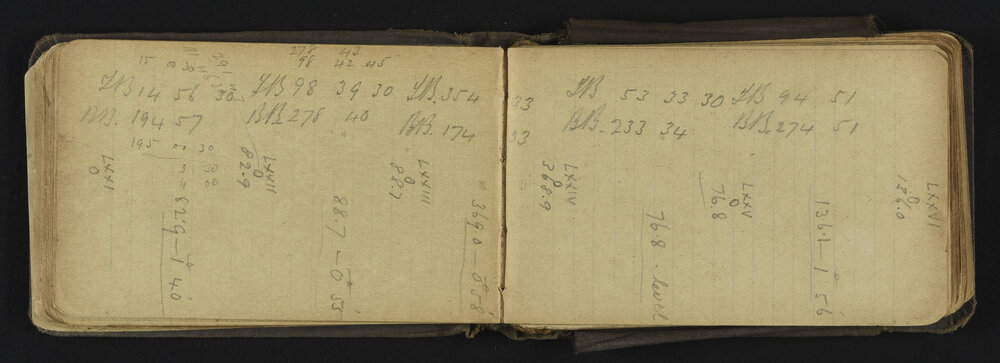 278 43
98 42 45
15 00
FB 14 56 30
BB. 194 57
195 00 30
FB 98 39 30
BB. 278 40
FB. 354 33
BB. 174 33
FB 53 33 30
BB. 233 34
FB 94 51
BB. 274 51
LXXI
0
LXXII
0
82.9
LXXIII
0
88.7
LXXIV
0
368.9
LXXV
0
76.8
LXXVI
0
136.0
82.9 - 1° 40'
88.7 - 0° 55'
369.0 - 0° 58'
76.8 level
136.1 - 1° 56